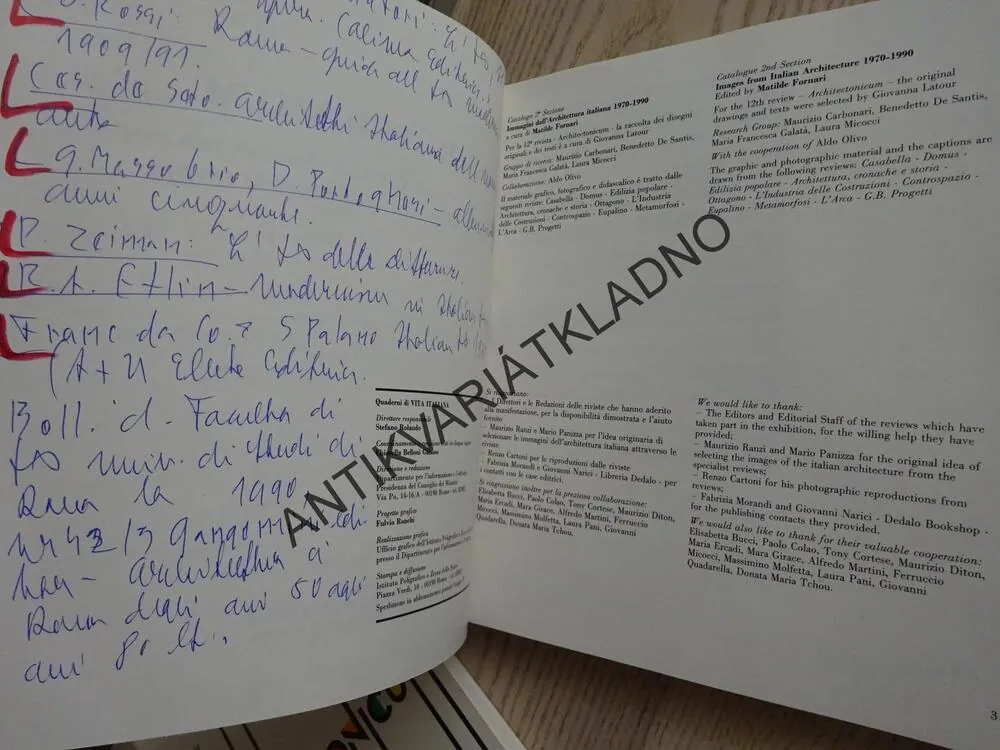 P. Rossi:
Roma - guida all'
1909/91.
architetti italiani dell'
anni cinquanta.
P. Zeiman: L' della differenza.
R.A. Etlin - Modernism in Italian
Franc da Co. S Polano Italian
(A+U Electa Editrice.
Boll. d. Facoltà di
univ. di studi di
Roma la 1990
architettura a
Roma degli anni 50 agli
anni 80
Quaderni di VITA ITALIANA
Direttore responsabile
Stefano Rolando
Direzione e redazione
Dipartimento per l'informazione e l'editoria
Presidenza del Consiglio dei Ministri
Via Po, 14-16/A - 00198 Roma
Progetto grafico
Fulvio Ronchi
Realizzazione grafica
Ufficio grafico dell'Istituto Poligrafico
presso il Dipartimento per l'informazione
Stampa e diffusione
Istituto Poligrafico e Zecca dello Stato
Piazza Verdi, 10 - 00198 Roma
Spedizione in abbonamento postale
Catalogo 2ª Sezione
Immagini dell'Architettura italiana 1970-1990
a cura di Matilde Fornari
Per la 12ª rivista - Architectonicum - la raccolta dei disegni
originali e dei testi è a cura di Giovanna Latour
Gruppo di ricerca: Maurizio Carbonari, Benedetto De Santis,
Maria Francesca Galatà, Laura Micocci
Collaborazione: Aldo Olivo
Il materiale grafico, fotografico e didascalico è tratto dalle
seguenti riviste: Casabella - Domus - Edilizia popolare -
Architettura, cronache e storia - Ottagono - L'Industria
delle Costruzioni - Controspazio - Eupalino - Metamorfosi -
L'Arca - G.B. Progetti
Si ringraziano:
- I Direttori e le Redazioni delle riviste che hanno aderito
alla manifestazione, per la disponibilità dimostrata e l'aiuto
fornito
- Maurizio Ranzi e Mario Panizza per l'idea originaria di
selezionare le immagini dell'architettura italiana attraverso le
riviste
- Renzo Cartoni per le riproduzioni dalle riviste
- Fabrizia Morandi e Giovanni Narici - Libreria Dedalo - per
i contatti con le case editrici.
Si ringraziano inoltre per la preziosa collaborazione:
Elisabetta Bucci, Paolo Colao, Tony Cortese, Maurizio Diton,
Maria Ercadi, Mara Girace, Alfredo Martini, Ferruccio
Micocci, Massimino Molfetta, Laura Pani, Giovanni
Quadarella, Donata Maria Tchou.
Catalogue 2nd Section
Images from Italian Architecture 1970-1990
Edited by Matilde Fornari
For the 12th review – Architectonicum – the original
drawings and texts were selected by Giovanna Latour
Research Group: Maurizio Carbonari, Benedetto De Santis,
Maria Francesca Galatà, Laura Micocci
With the cooperation of Aldo Olivo
The graphic and photographic material and the captions are
drawn from the following reviews: Casabella - Domus -
Edilizia popolare - Architettura, cronache e storia -
Ottagono - L'Industria delle Costruzioni - Controspazio -
Eupalino - Metamorfosi - L'Arca - G.B. Progetti
We would like to thank:
– The Editors and Editorial Staff of the reviews which have
taken part in the exhibition, for the willing help they have
provided;
– Maurizio Ranzi and Mario Panizza for the original idea of
selecting the images of the italian architecture from the
specialist reviews;
– Renzo Cartoni for his photographic reproductions from
reviews;
– Fabrizia Morandi and Giovanni Narici - Dedalo Bookshop -
for the publishing contacts they provided.
We would also like to thank for their valuable cooperation:
Elisabetta Bucci, Paolo Colao, Tony Cortese, Maurizio Diton,
Maria Ercadi, Mara Girace, Alfredo Martini, Ferruccio
Micocci, Massimino Molfetta, Laura Pani, Giovanni
Quadarella, Donata Maria Tchou.
3
ANTIKVARIÁTKLADNO